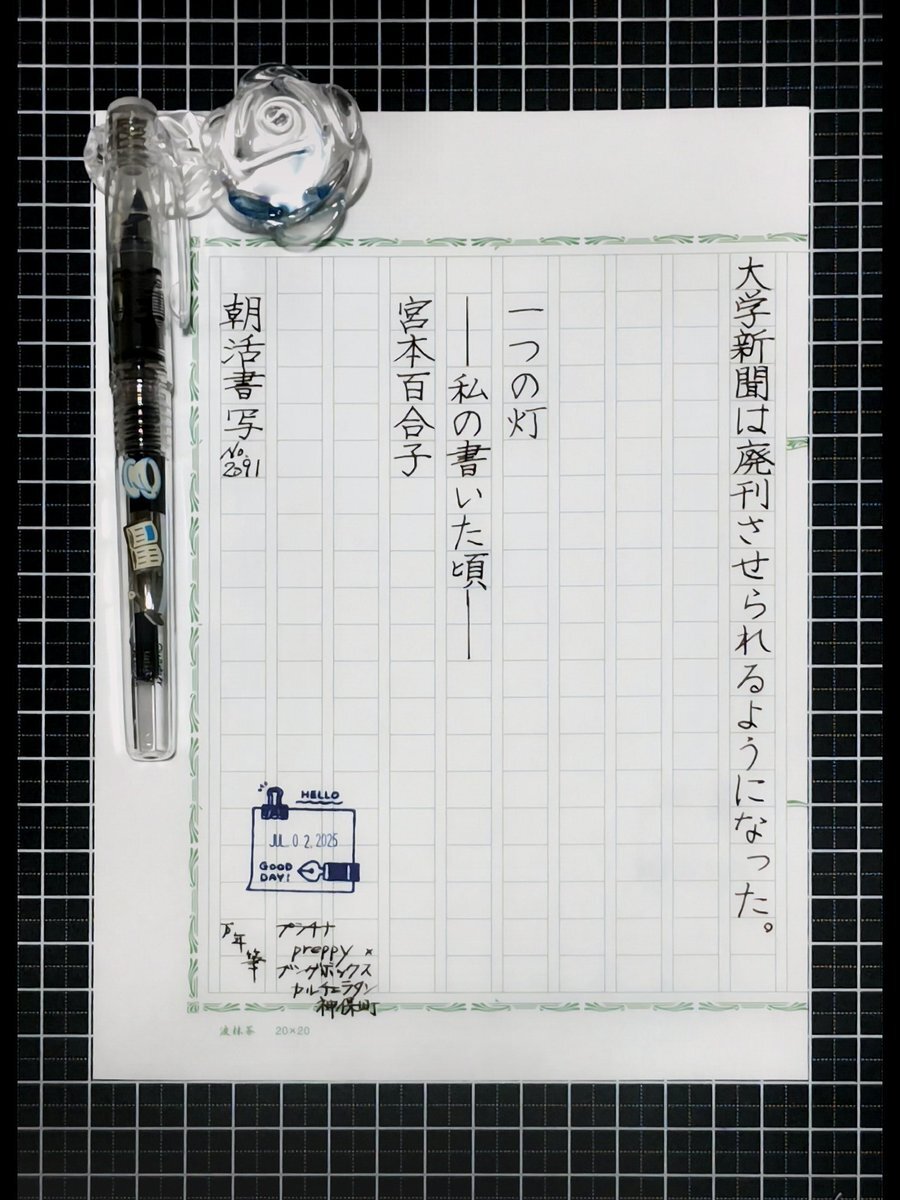 大学新聞は廃刊させられるようになった。
一つの灯
――私の書いた頃――
宮本百合子
朝活書写
No.
2091
HELLO
JUL. 02. 2025
GOOD
DAY!
万年筆
プラチナ
preppy ×
ブングボックス
カルチェラタン
神保町
20×20